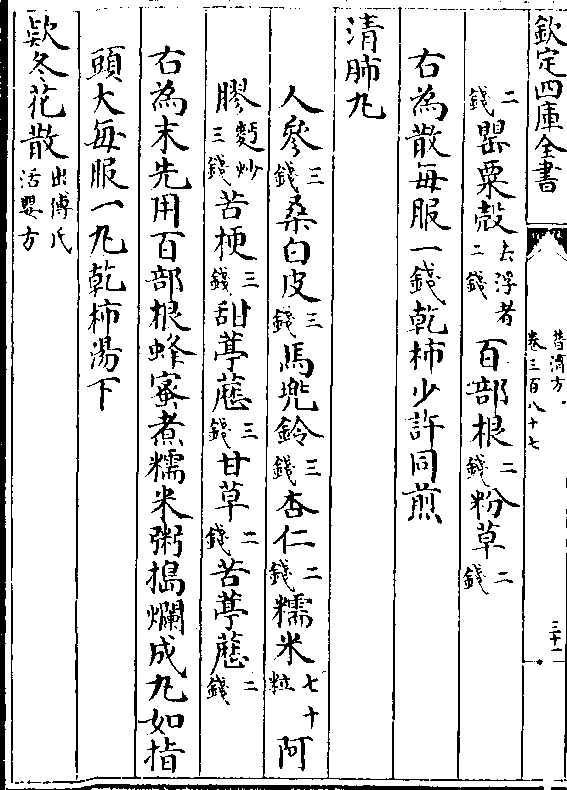 欽定四庫全書
普濟方
卷三百八十七
三十一
二錢罌粟殼去浮者二錢百部根二錢粉草二錢
右為散每服一錢乾柿少許同煎
清肺丸
人參三錢桑白皮三錢馬兜鈴三錢杏仁二錢糯米七十粒阿
膠麪炒三錢苦梗三錢甜葶藶三錢甘草二錢苦葶藶二錢
右為末先用百部根蜂蜜煮糯米粥搗爛成丸如指
頭大每服一丸乾柿湯下
欵冬花散出傅氏活嬰方